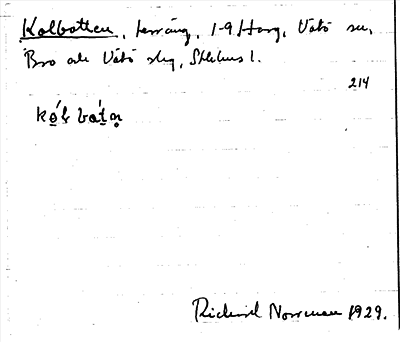 Kolbotten, terräng, 1-9 Harg, Vätö sn,
Bro och Vätö skg, Sthlms l.
214
Rickard Norrman 1929.